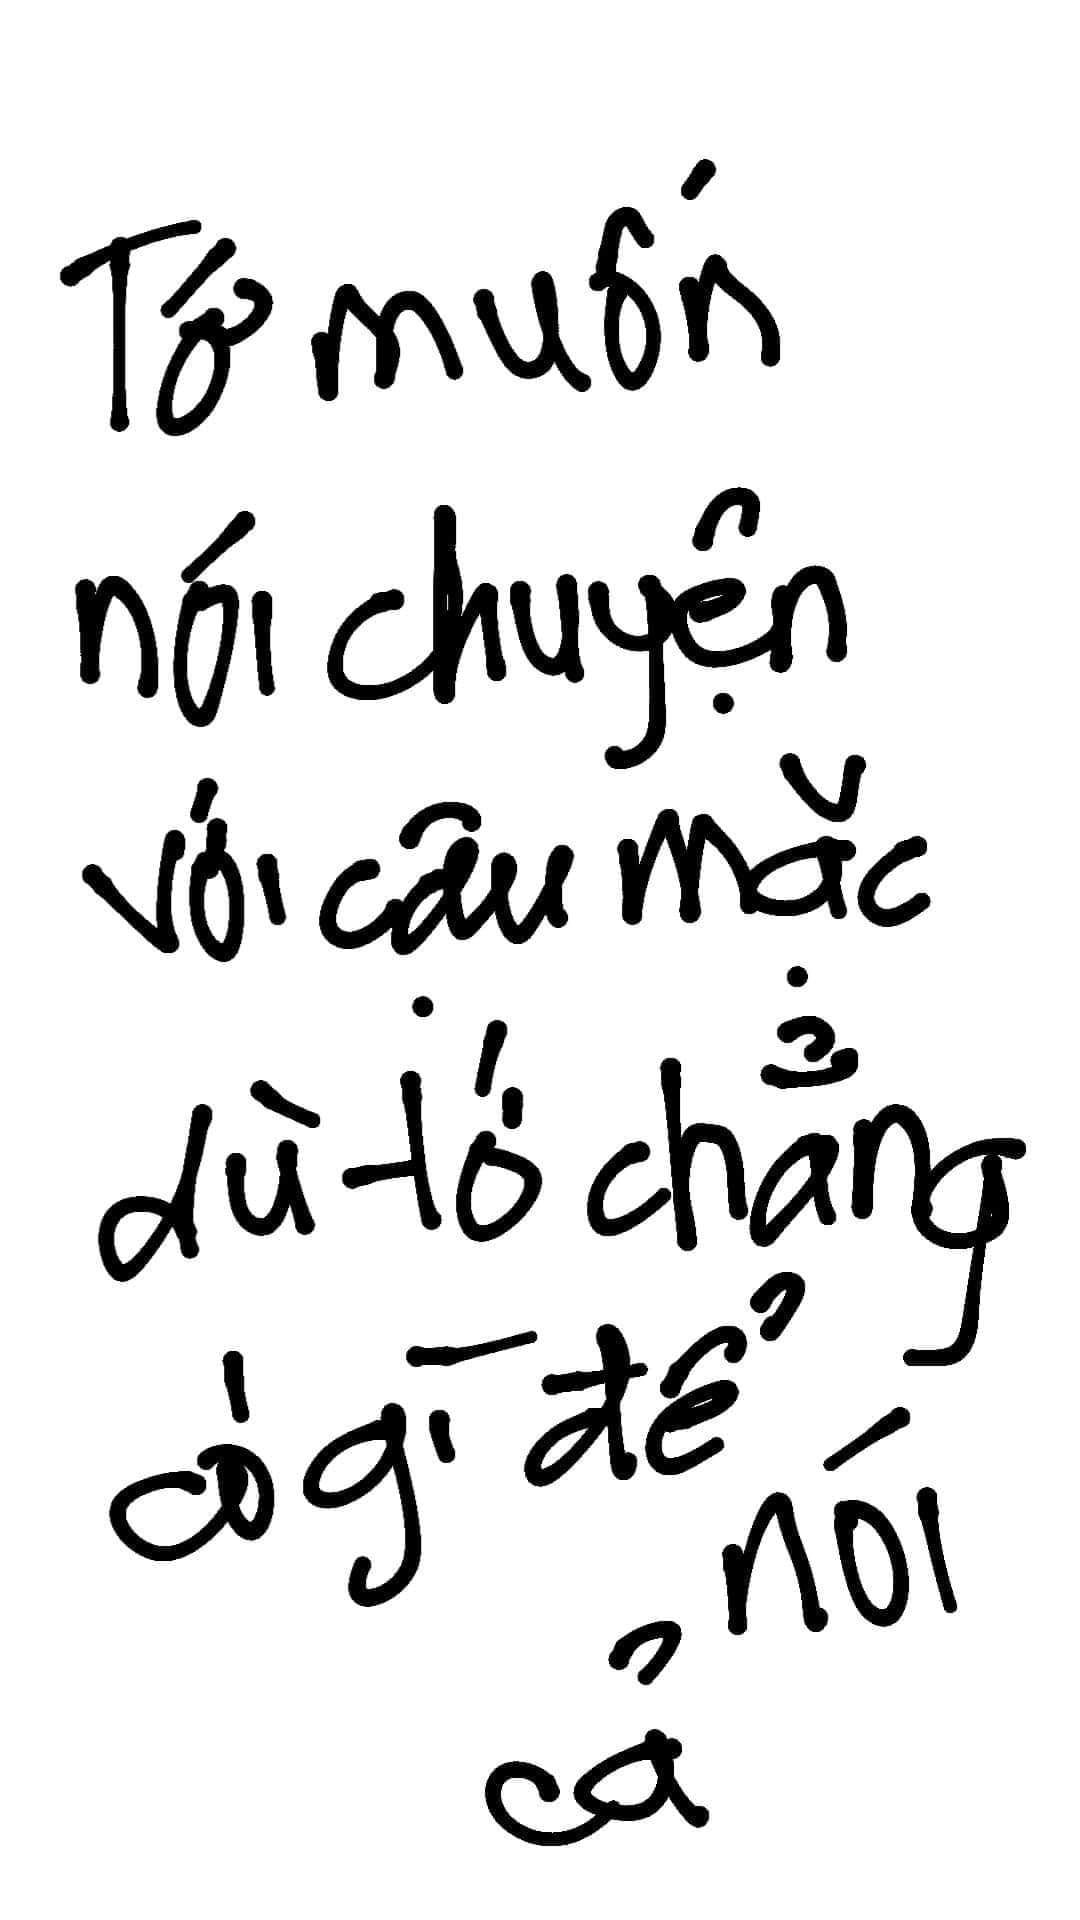 Tớ muốn
nói chuyện
với cậu mặc
dù tớ chẳng
có gì để
nói
cả